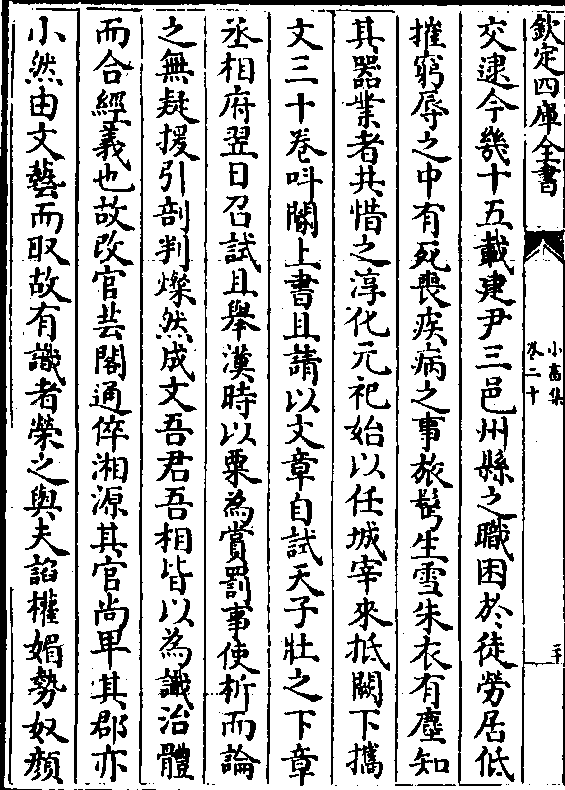 欽定四庫全書
小畜集
卷二十
交逮今幾十五載建尹三邑州縣之職困於徒勞居低
摧窮辱之中有死喪疾病之事旅鬢生雪朱衣有塵知
其器業者共惜之淳化元祀始以任城宰來抵闕下攜
文三十卷呌閽上書且請以文章自試天子壯之下章
丞相府翌日召試且舉漢時以粟為賞罰事使析而論
之無疑援引剖判燦然成文吾君吾相皆以為識治體
而合經義也故改官芸閣通倅湘源其官尚卑其郡亦
小然由文藝而取故有識者榮之與夫諂權媚勢奴顏